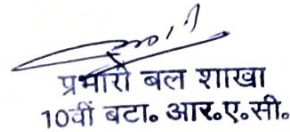 प्रभारी बल शाखा
10वीं बटा॰ आर॰ए॰सी॰